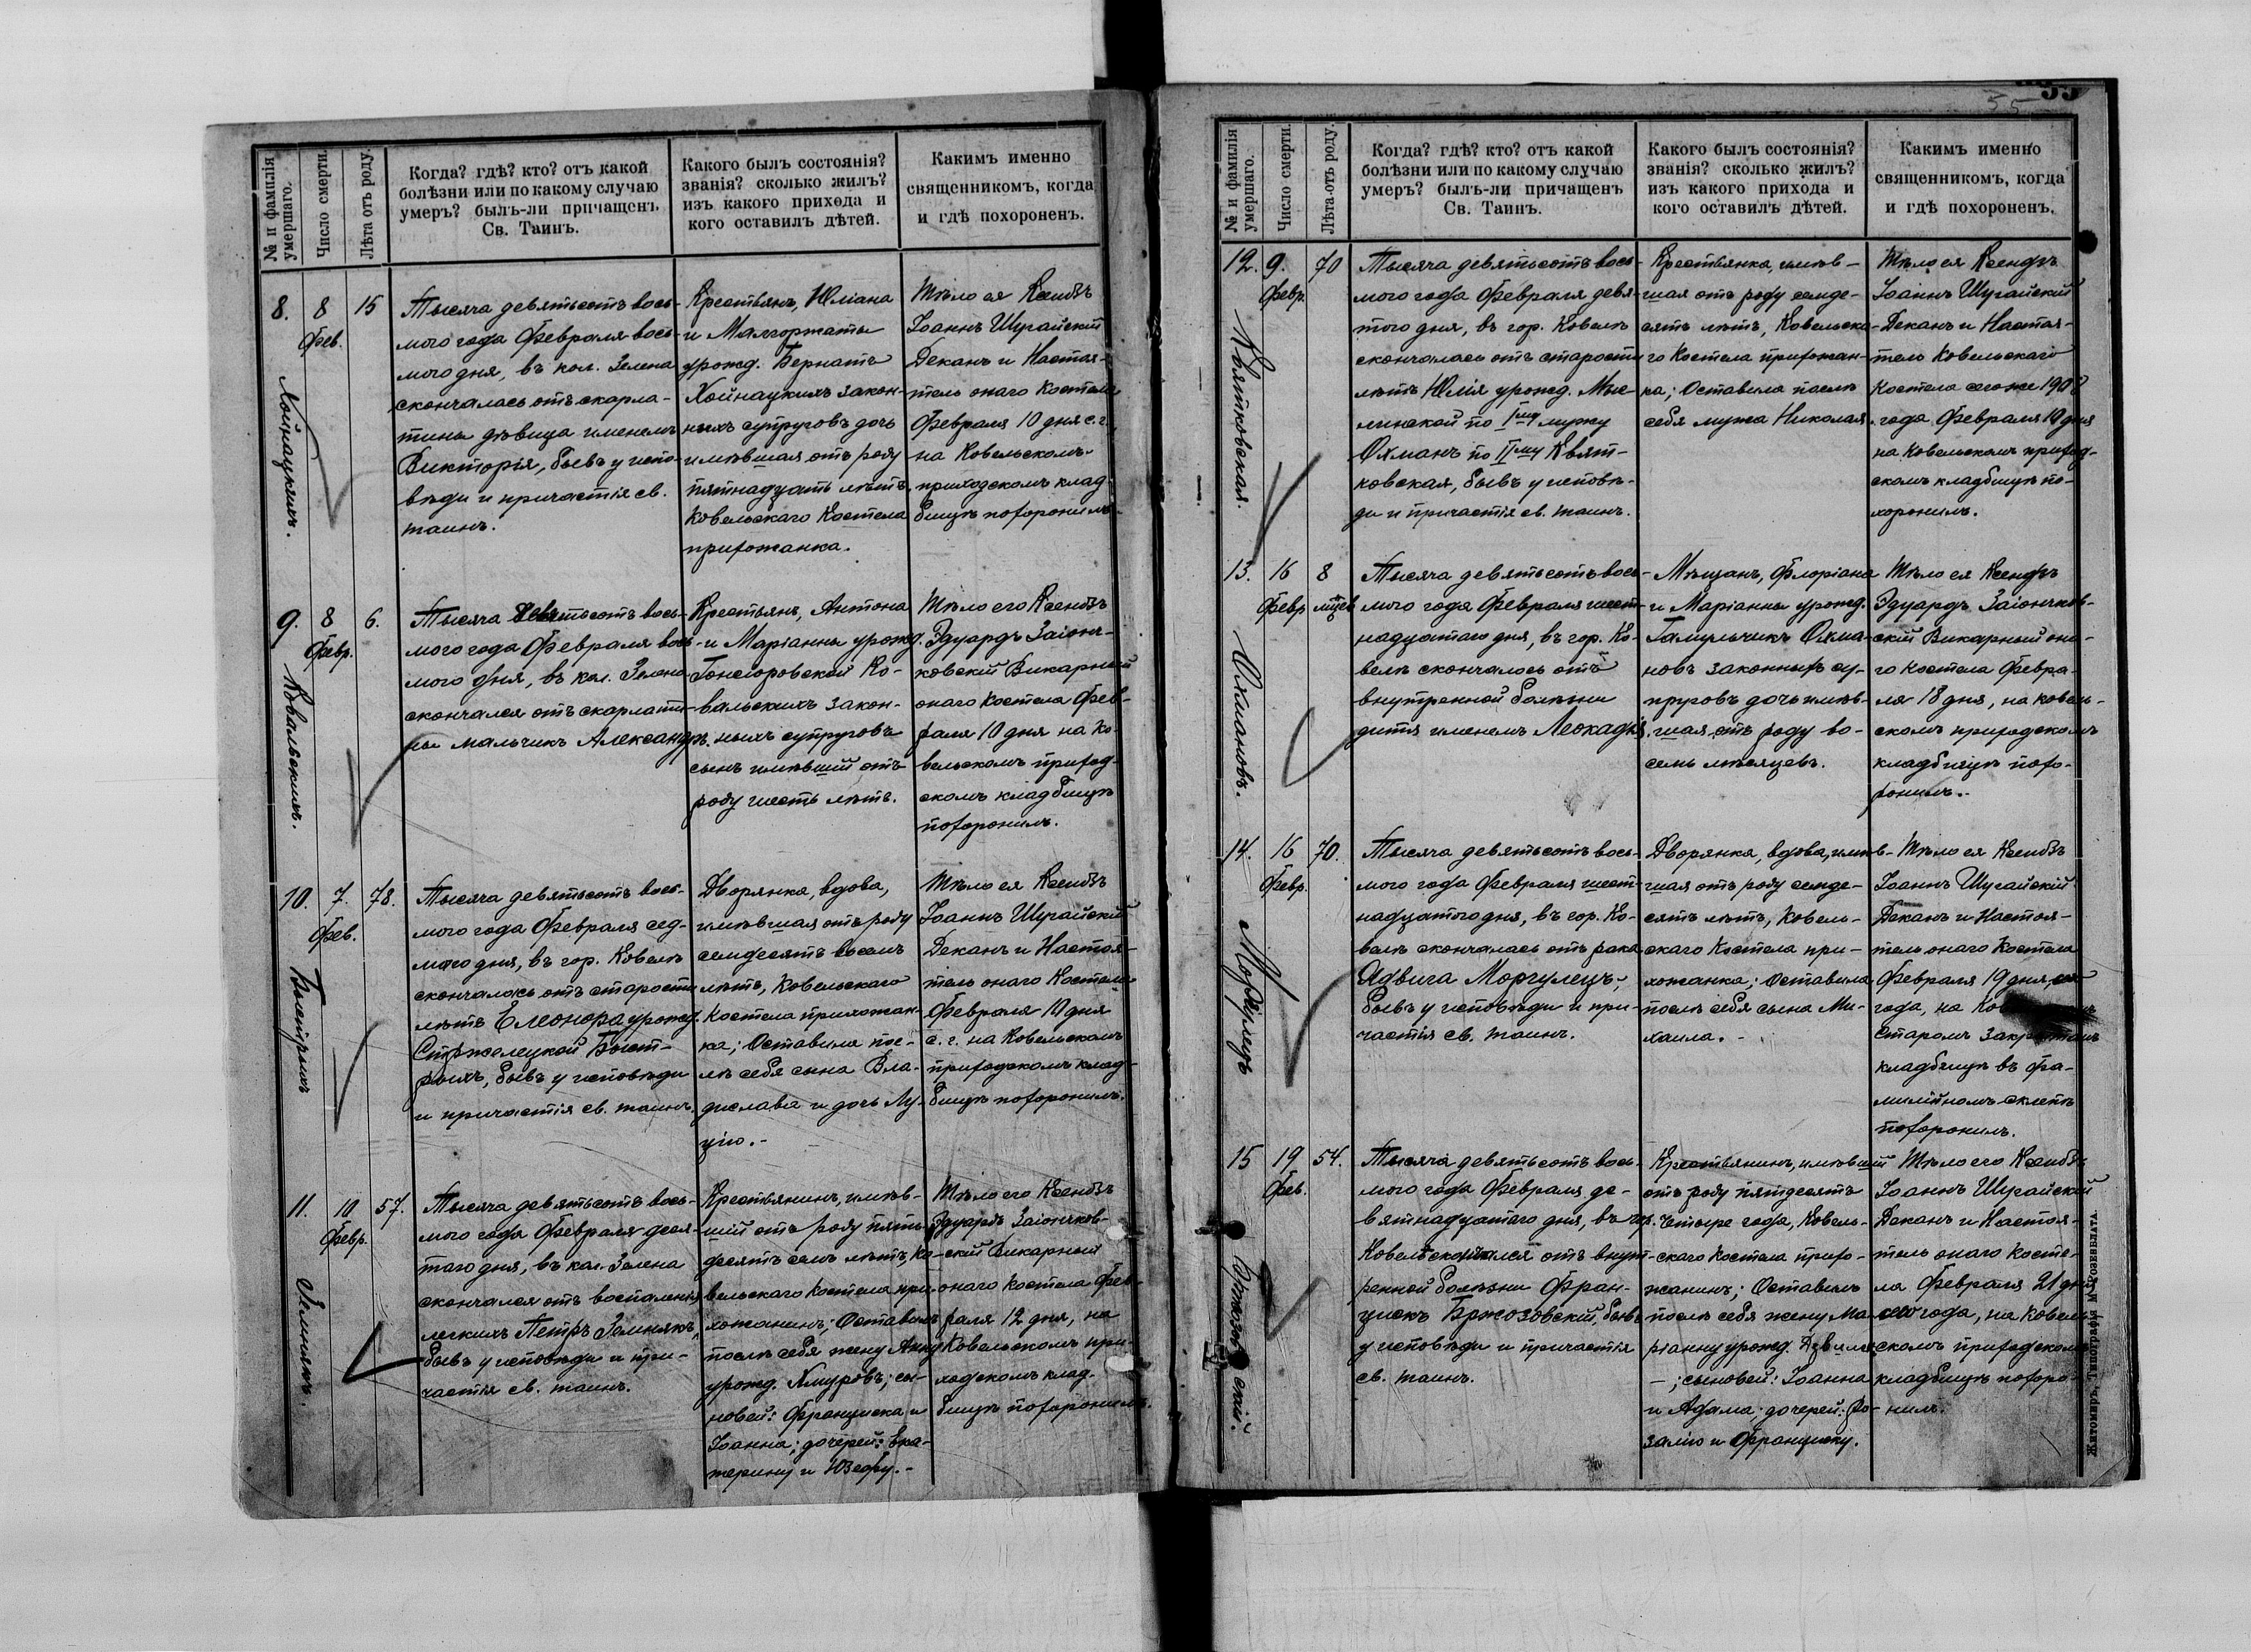 № и фамилія умершаго.
Число смерти.
Лѣта отъ роду.
Когда? гдѣ? кто? отъ какой
болѣзни или по какому случаю
умеръ? былъ-ли причащенъ
Св. Таинъ.
Какого былъ состоянія?
званія? сколько жилъ?
изъ какого прихода и
кого оставилъ дѣтей.
Какимъ именно
священникомъ, когда
и гдѣ похороненъ.
8.
8
Фев.
15
Хойнацкихъ.
Тысяча девятьсотъ вось-
мого года Февраля вось-
мого дня, въ кол. Зелена
скончалась отъ скарла-
тины дѣвица именемъ
Викторія, бывъ у испо-
вѣди и причастія св.
таинъ.
Крестьянъ, Юліана
и Малгоржаты
урожд. Бернатъ
Хойнацкихъ закон-
ныхъ супруговъ дочь
имѣвшая отъ роду
пятнадцать лѣтъ,
Ковельскаго Костела
прихожанка.
Тѣло ея Ксендзъ
Іоаннъ Шугайскій
Деканъ и Настоя-
тель онаго Костела
Февраля 10 дня с. г.
на Ковельскомъ
приходскомъ клад-
бищѣ похоронилъ.
9.
8
Февр.
6.
Ковальскихъ.
Тысяча девятьсотъ вось-
мого года Февраля вось-
мого дня, въ кол. Зелена
скончался отъ скарлати-
ны мальчикъ Александръ.
Крестьянъ, Антона
и Маріанны урожд.
Гонсіоровской Ко-
вальскихъ закон-
ныхъ супруговъ
сынъ имѣвшій отъ
роду шесть лѣтъ.
Тѣло его Ксендзъ
Эдуардъ Заіонч-
ковскій Викарный
онаго Костела Фев-
раля 10 дня на Ко-
вельскомъ приход-
скомъ кладбищѣ
похоронилъ.
10.
7.
Фев.
78.
Быстрыхъ
Тысяча девятьсотъ вось-
мого года Февраля сед-
мого дня, въ гор. Ковелѣ
скончалась отъ старости
лѣтъ Елеонора урожд.
Стржелецкой Быст-
рыхъ, бывъ у исповѣди
и причастія св. таинъ.
Дворянка, вдова,
имѣвшая отъ роду
семдесятъ восемь
лѣтъ, Ковельскаго
Костела прихожан-
ка; Оставила пос-
лѣ себя сына Вла-
дислава и дочь Лу-
цію.-
Тѣло ея Ксендзъ
Іоаннъ Шугайскій
Деканъ и Настоя-
тель онаго Костела
Февраля 10 дня
с. г. на Ковельскомъ
приходскомъ клад-
бищѣ похоронилъ.
11.
10
Февр.
57.
Зелинякъ.
Тысяча девятьсотъ вось-
мого года Февраля деся-
таго дня, въ кол. Зелена
скончался отъ воспаленія
легкихъ Петръ Зелинякъ,
бывъ у исповѣди и при-
частія св. таинъ.
Крестьянинъ, имѣв-
шій отъ роду пять-
десятъ семь лѣтъ, Ко-
вельскаго Костела при-
хожанинъ; Оставилъ
послѣ себя жену Анну
урожд. Хмуровъ; сы-
новей: Франциска и
Іоанна; дочерей: Ека-
терину и Юзефу.-
Тѣло его Ксендзъ
Эдуардъ Заіончков-
скій Викарный
онаго Костела Фев-
раля 12 дня, на
Ковельскомъ при-
ходскомъ клад-
бищѣ похоронилъ.
55
№ и фамилія умершаго.
Число смерти.
Лѣта отъ роду.
Когда? гдѣ? кто? отъ какой
болѣзни или по какому случаю
умеръ? былъ-ли причащенъ
Св. Таинъ.
Какого былъ состоянія?
званія? сколько жилъ?
изъ какого прихода и
кого оставилъ дѣтей.
Какимъ именно
священникомъ, когда
и гдѣ похороненъ.
12.
9.
Февр.
70
Квятковская.
Тысяча девятьсотъ вось-
мого года Февраля девя-
того дня, въ гор. Ковелѣ
скончалась отъ старости
лѣтъ Юлія урожд. Мыс-
линской по Iму мужу
Охманъ по IIму Квят-
ковская, бывъ у исповѣ-
ди и причастія св. таинъ.
Крестьянка, имѣв-
шая отъ роду семде-
сятъ лѣтъ, Ковельска-
го Костела прихожан-
ка; Оставила послѣ
себя мужа Николая
Тѣло ея Ксендзъ
Іоаннъ Шугайскій
Деканъ и Настоя-
тель Ковельскаго
Костела сего же 1908
года Февраля 10 дня
на Ковельскомъ приход-
скомъ кладбищѣ по-
хоронилъ.
13.
16
Февр
8
мѣсяцев
Охмановъ.
Тысяча девятьсотъ вось-
мого года Февраля шест-
надцатаго дня, въ гор. Ко-
велѣ скончалось отъ
внутренной болѣзни
дитя именемъ Леокадія.
Мѣщанъ, Флоріана
и Маріанны урожд.
Гамульчикъ Охма-
новъ законныхъ су-
пруговъ дочь имѣв-
шая отъ роду во-
семь мѣсяцевъ.
Тѣло ея Ксендзъ
Эдуардъ Заіончков-
скій Викарный она-
го Костела Февра-
ля 18 дня, на ковель-
скомъ приходскомъ
кладбищѣ похо-
ронилъ.
14.
16
Февр.
70.
Моргулецъ
Тысяча девятьсотъ вось-
мого года Февраля шест-
надцатого дня, въ гор. Ко-
велѣ скончалась отъ рака
Ядвига Моргулецъ,
бывъ у исповѣди и при-
частія св. таинъ.
Дворянка, вдова, имѣв-
шая отъ роду семде-
сятъ лѣтъ, Ковель-
скаго Костела при-
хожанка; Оставила
послѣ себя сына Ми-
хаила.-
Тѣло ея Ксендзъ
Іоаннъ Шугайскій
Деканъ и Настоя-
тель онаго Костела
Февраля 19 дня,
года, на
старомъ
кладбищѣ въ фа-
милійномъ склепѣ
похоронилъ.
15
19
Фев.
54.
Тысяча девятьсотъ вось-
мого года Февраля де-
вятнадцатаго дня, въ гор.
Ковелѣ скончался отъ внут-
ренной болѣзни Фран-
цискъ Бржозовскій, бывъ
у исповѣди и причастія
св. таинъ.
Крестьянинъ, имѣвшій
отъ роду пятдесятъ
четыре года, Ковель-
скаго Костела прихо-
жанинъ; Оставилъ
послѣ себя жену Ма-
ріанну урожд.
-; сыновей: Іоанна
и Адама; дочерей: Ро-
залію и Франциску.
Тѣло его Ксендзъ
Іоаннъ Шугайскій
Деканъ и Настоя-
тель онаго Косте-
ла Февраля 21 дня
сего года, на Ковель-
скомъ приходскомъ
кладбищѣ похоро-
нилъ.
Житомиръ, Типографія М. Розенблата.